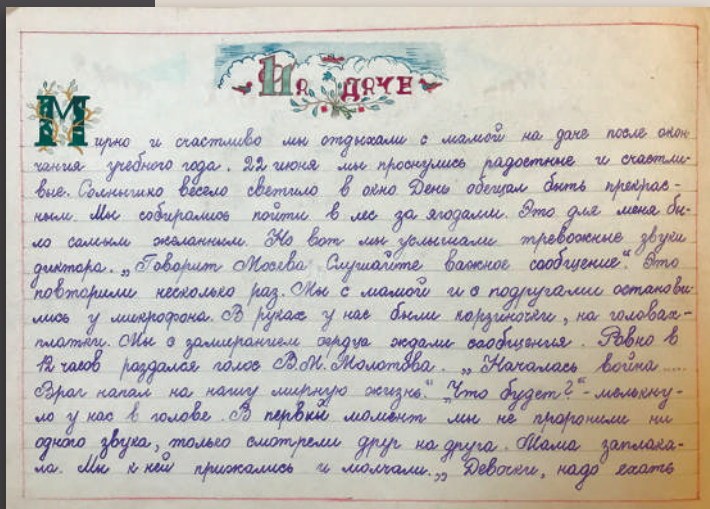 На даче
Мирно и счастливо мы отдыхали с мамой на даче после окон
чания учебного года. 22 июня мы проснулись радостные и счастли-
вые. Солнышко весело светило в окно День обещал быть прекрас-
ным. Мы собирались пойти в лес за ягодами. Это для меня бы-
ло самым желанным. Но вот мы услышали тревожные звуки
диктора. „Говорит Москва Слушайте важное сообщение". Это
повторили несколько раз. Мы с мамой и с подругами останови-
лись у микрофона. В руках у нас были корзиночки, на головах-
платки. Мы с замиранием сердца ждали сообщения. Равно в
12 часов раздался голос В.М. Молотова. „Началась война....
Враг напал на нашу мирную жизнь." „Что будет?"-мелькну-
ло у нас в голове. В первый момент мы не проронили ни
одного звука, только смотрели друг на друга. Мама заплака-
ла. Мы к ней прижались и молчали. „Девочки, надо ехать